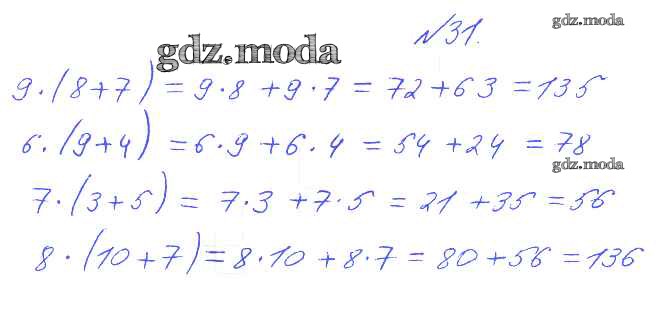 №31.
gdz.moda
gdz.moda
9·(8+7)=9·8+9·7=72+63=135
6·(9+4)=6·9+6·4=54+24=78
gdz.moda
7·(3+5)=7·3+7·5=21+35=56
8·(10+7)=8·10+8·7=80+56=136